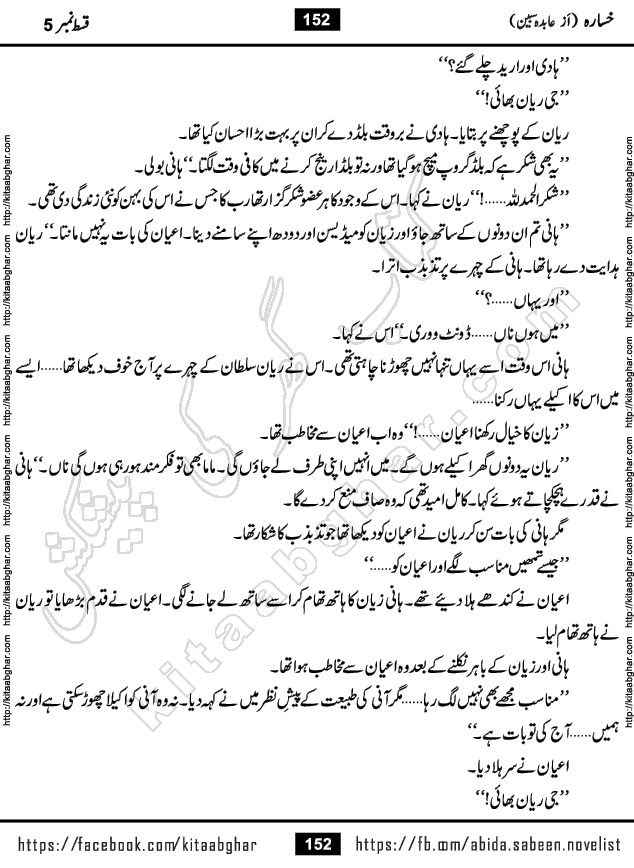 خسارہ (از عابدہ سبین) 152 قسط نمبر 5
’’ہادی اور ارید چلے گئے؟‘‘
’’جی ریان بھائی!‘‘
ریان کے پوچھنے پر بتایا۔ ہادی نے بروقت بلڈ دے کر ان پر بہت بڑا احسان کیا تھا۔
’’یہ بھی شکر ہے کہ بلڈ گروپ میچ ہو گیا تھا ورنہ تو بلڈ ارینج کرنے میں کافی وقت لگتا۔‘‘ ہانی بولی۔
’’شکر الحمدللہ......!‘‘ ریان نے کہا۔ اس کے وجود کا ہر عضو شکر گزار تھا رب کا جس نے اس کی بہن کو نئی زندگی دی تھی۔
’’ہانی تم ان دونوں کے ساتھ جاؤ اور زیان کو میڈیسن اور دودھ اپنے سامنے دینا۔ اعیان کی بات یہ نہیں مانتا۔‘‘ ریان
ہدایت دے رہا تھا۔ ہانی کے چہرے پر تذبذب اترا۔
’’اور یہاں......؟‘‘
’’میں ہوں ناں......ڈونٹ ووری۔‘‘ اس نے کہا۔
ہانی اس وقت اسے یہاں تنہا نہیں چھوڑنا چاہتی تھی۔ اس نے ریان سلطان کے چہرے پر آج خوف دیکھا تھا......ایسے
میں اس کا اکیلے یہاں رکنا......
’’زیان کا خیال رکھنا اعیان......!‘‘ وہ اب اعیان سے مخاطب تھا۔
’’ریان یہ دونوں گھر اکیلے ہوں گے۔ میں انہیں اپنی طرف لے جاؤں گی۔ ماما بھی تو فکر مند ہو رہی ہوں گی ناں۔‘‘ ہانی
نے قدرے ہچکچاتے ہوئے کہا۔ کامل امید تھی کہ وہ صاف منع کر دے گا۔
مگر ہانی کی بات سن کر ریان نے اعیان کو دیکھا تھا جو تذبذب کا شکار تھا۔
’’جیسے تمھیں مناسب لگے اور اعیان کو......‘‘
اعیان نے کندھے ہلا دیئے تھے۔ ہانی زیان کا ہاتھ تھام کر اسے ساتھ لے جانے لگی۔ اعیان نے قدم بڑھایا تو ریان
نے ہاتھ تھام لیا۔
ہانی اور زیان کے باہر نکلنے کے بعد وہ اعیان سے مخاطب ہوا تھا۔
’’مناسب مجھے بھی نہیں لگ رہا......مگر آنی کی طبیعت کے پیشِ نظر میں نے کہہ دیا۔ نہ وہ آنی کو اکیلا چھوڑ سکتی ہے اور نہ
ہمیں......آج کی تو بات ہے۔‘‘
اعیان نے سر ہلا دیا۔
’’جی ریان بھائی!‘‘
http://kitaabghar.com http://kitaabghar.com http://kitaabghar.com http://kitaabghar.com http://kitaabghar.com http://kitaabghar.com
http://kitaabghar.com http://kitaabghar.com http://kitaabghar.com http://kitaabghar.com http://kitaabghar.com http://kitaabghar.com
کتاب گھر کی پیشکش
kitaabghar.com
https://facebook.com/kitaabghar 152 https://fb.com/abida.sabeen.novelist